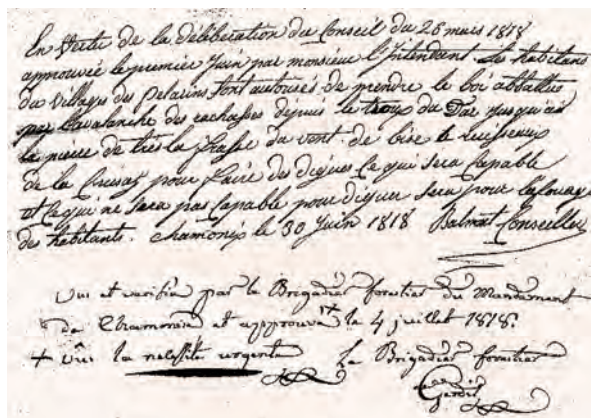 En Vertu de la déliberation du Conseil du 28 mars 1818
approuvée le premier Juin par monsieur l'Intendant Les habitans
du villages des Pelarins sont autorisés de prendre le boi abbattue
par l'avalanche des eschasses dépuis le du Dar jusqu'ai
la pièce de très la frasse du vent de bise le Ruisseaux
de la Creusaz pour faire des digues Ce qui sera Capable
et Ce qui ne sera pas Capable pour diguer sera pour
des habitants. chamonix le 30 Juin 1818 Balmat Conseiller
Vu et vérifié par le Brigadier forestier du Mandement
de Chamonix et approuvé + le 4 juillet 1818.
+ vûe la nécessité urgente Le Brigadier forestier